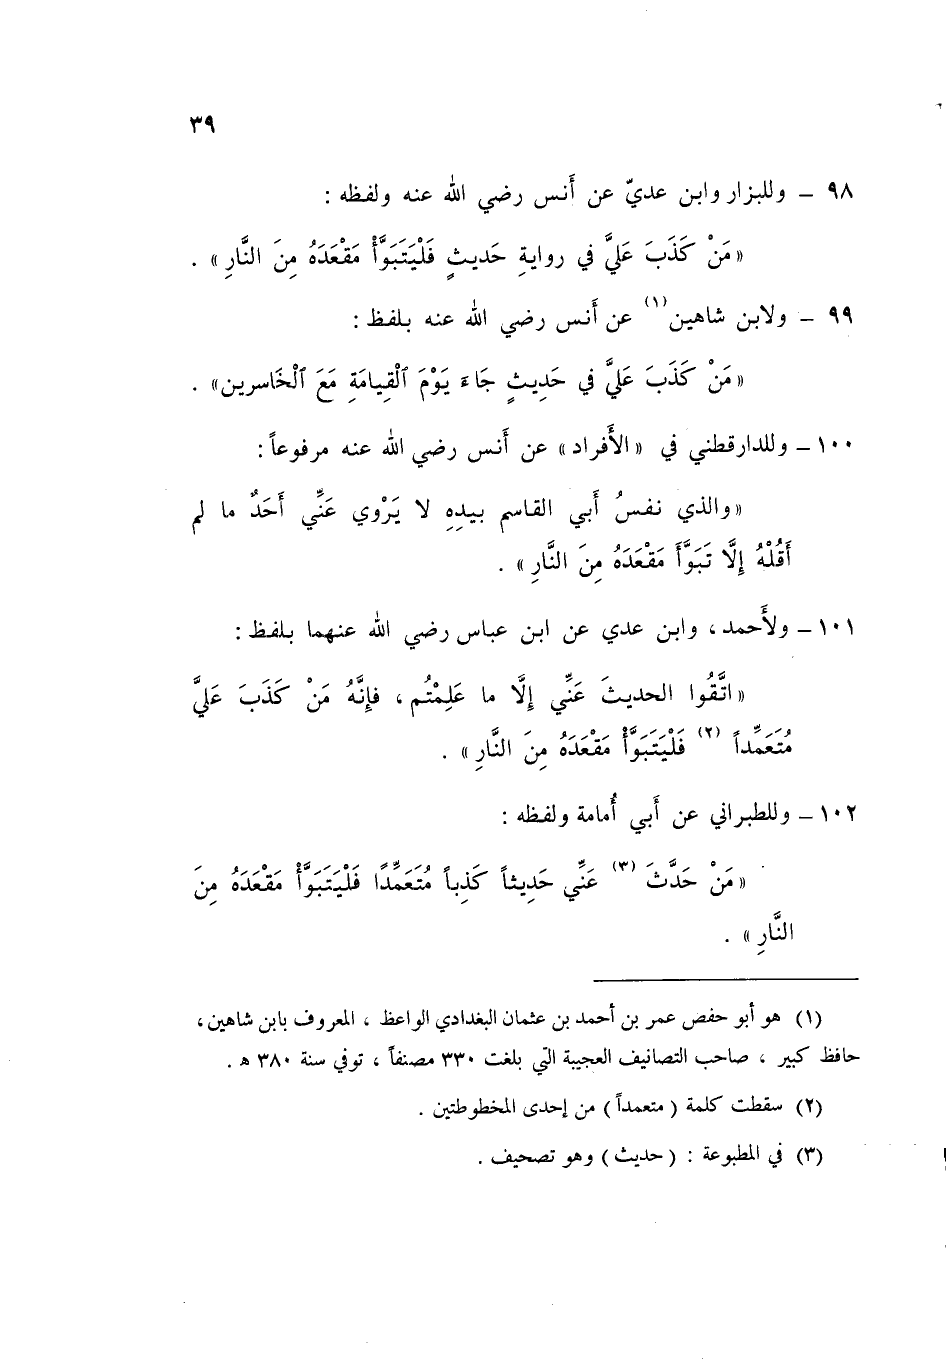 ٣٩
٩٨ - وللبزار وابن عديّ عن أَنس رضي الله عنه ولفظه :
« مَنْ كَذَبَ عَلَيَّ في روايةِ حَديثٍ فَلْيَتَبَوَّأْ مَقْعَدَهُ مِنَ النَّارِ » .
٩٩ - ولابن شاهين (١) عن أَنس رضي الله عنه بلفظ :
« مَنْ كَذَبَ عَلَيَّ في حَدِيثٍ جَاءَ يَوْمَ ٱلْقِيامَةِ مَعَ ٱلْخَاسرين » .
١٠٠ - وللدارقطني في « الأَفراد » عن أَنس رضي الله عنه مرفوعاً :
« والذي نفسُ أَبي القاسم بيدِهِ لا يَرْوي عَنِّي أَحَدٌ ما لم
أَقُلْهُ إِلَّا تَبَوَّأَ مَقْعَدَهُ مِنَ النَّارِ » .
١٠١ - ولأَحمد ، وابن عدي عن ابن عباس رضي الله عنهما بلفظ :
« اتَّقُوا الحديثَ عَنِّي إِلَّا ما عَلِمْتُم ، فإِنَّهُ مَنْ كَذَبَ عَلَيَّ
مُتَعَمِّداً (٢) فَلْيَتَبَوَّأْ مَقْعَدَهُ مِنَ النَّارِ » .
١٠٢ - وللطبراني عن أَبي أُمامة ولفظه :
« مَنْ حَدَّثَ (٣) عَنِّي حَدِيثاً كَذِباً مُتَعَمِّدًا فَلْيَتَبَوَّأْ مَقْعَدَهُ مِنَ
النَّارِ » .
(١) هو أبو حفص عمر بن أحمد بن عثمان البغدادي الواعظ ، المعروف بابن شاهين ،
حافظ كبير ، صاحب التصانيف العجيبة التي بلغت ٣٣٠ مصنفاً ، توفي سنة ٣٨٠ ه .
(٢) سقطت كلمة ( متعمداً ) من إحدى المخطوطتين .
(٣) في المطبوعة : ( حديث ) وهو تصحيف .